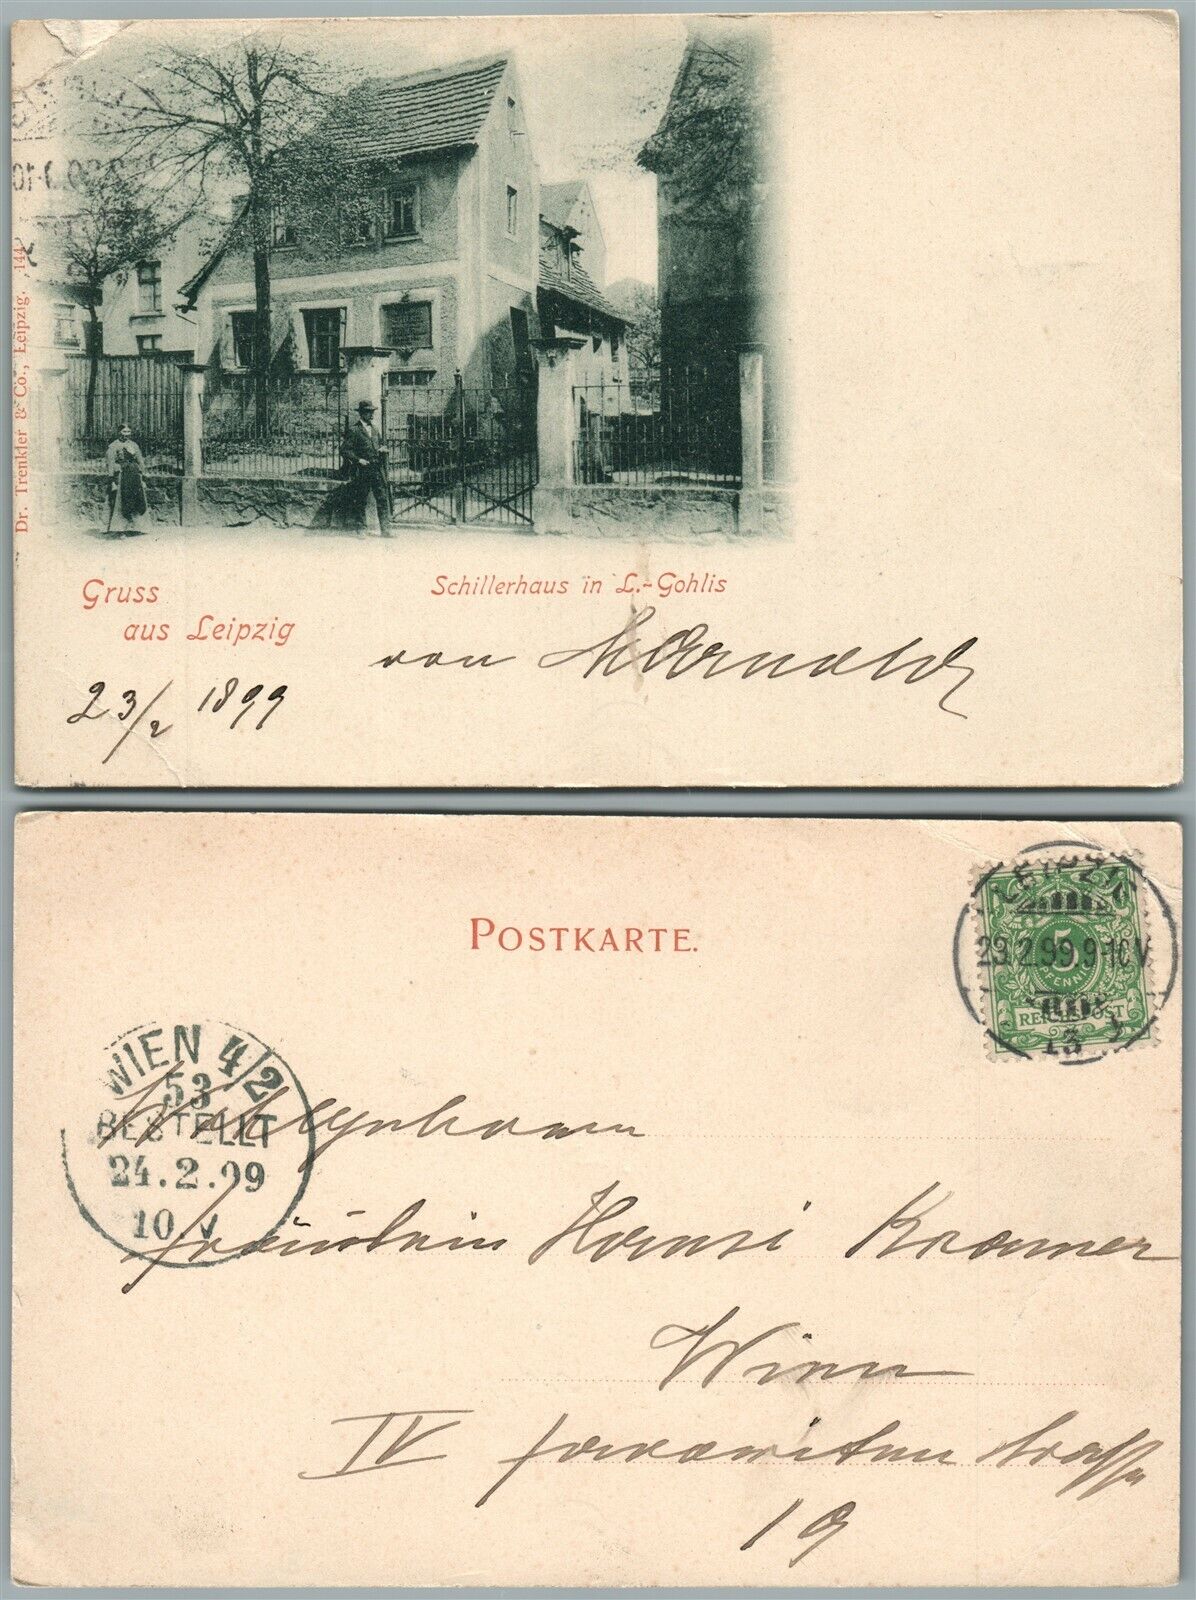 Dr. Trenkler & Co., Leipzig. 144
Gruss
aus Leipzig
Schillerhaus in L.-Gohlis
von Arnold
23/2 1899
POSTKARTE.
LEIPZIG
23.2.99.9-10V
13
5
PFENNIG
REICHSPOST
WIEN 4/2
53
BESTELLT
24.2.99
10 V
Wohlgeboren
Fräulein Hansi Kramer
Wien
IV Favoritenstrasse
19